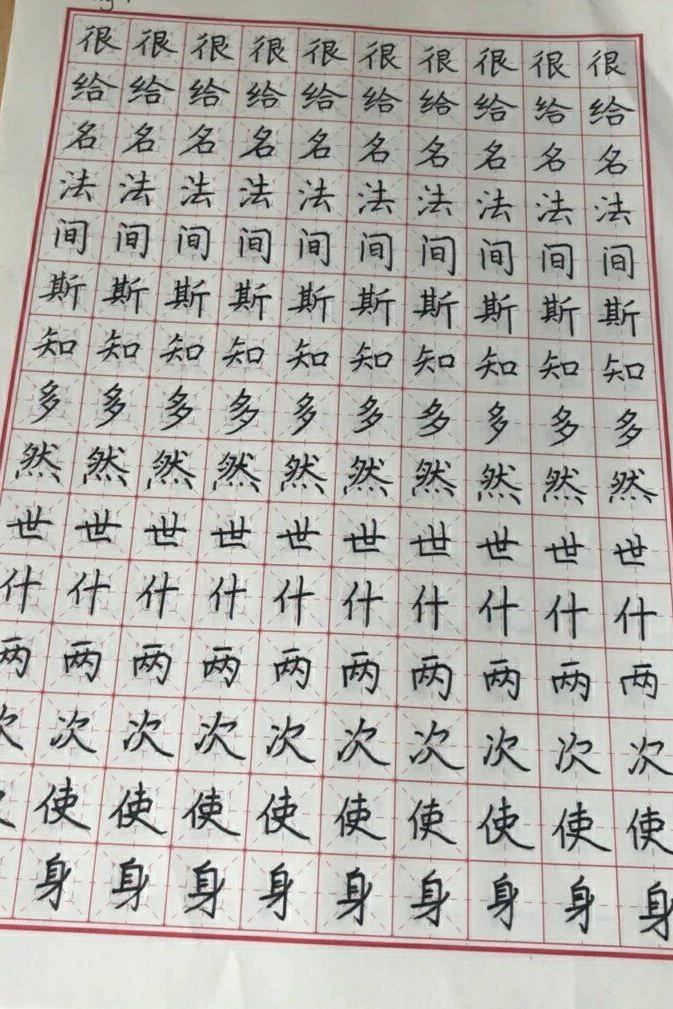 很很很很很很很很很很
给给给给给给给给给给
名名名名名名名名名名
法法法法法法法法法法
间间间间间间间间间间
斯斯斯斯斯斯斯斯斯斯
知知知知知知知知知知
多多多多多多多多多多
然然然然然然然然然然
世世世世世世世世世世
什什什什什什什什什什
两两两两两两两两两两
次次次次次次次次次次
使使使使使使使使使
身身身身身身身身身